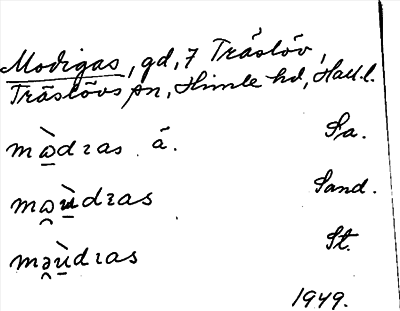 Modigas, gd, 7 Träslöv,
Träslövs sn, Himle hd, Hall. l.
mɷ̠̀dɿas. a᷄. Sa.
mɷ̯ù̠dɿas Sand.
məù̠dɿas St.
1949.